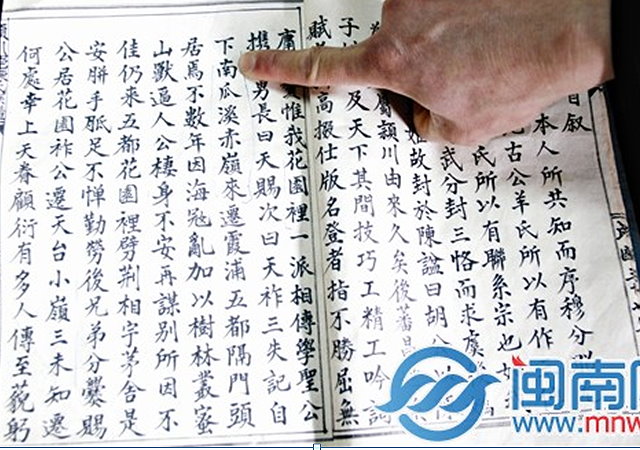 自叙
本人所共知而序穆分
古公羊氏所以有作
氏所以有聯系宗也
武分封三恪而求虞
姓故封於陳謚曰胡公
潁川由來久矣後蕃昌
子 及天下其間技巧工精工吟詞
賦 高掇仕版名登者指不勝屈無
庸 惟我花園裡一派相傳學聖公
携 男長曰天賜次曰天祚三失記自
下南瓜溪赤嶺來遷霞浦五都隔門頭
居焉不数年因海冦亂加以樹林叢蜜
山獸逼人公棲身不安再謀別所因不
佳仍來五都花園裡劈荆相宇茅舍是
安胼手胝足不憚勤勞後兄弟分爨賜
公居花園祚公遷天台小嶺三未知遷
何處幸上天眷顧衍有多人傳至藐躬
闽南
www.mnw